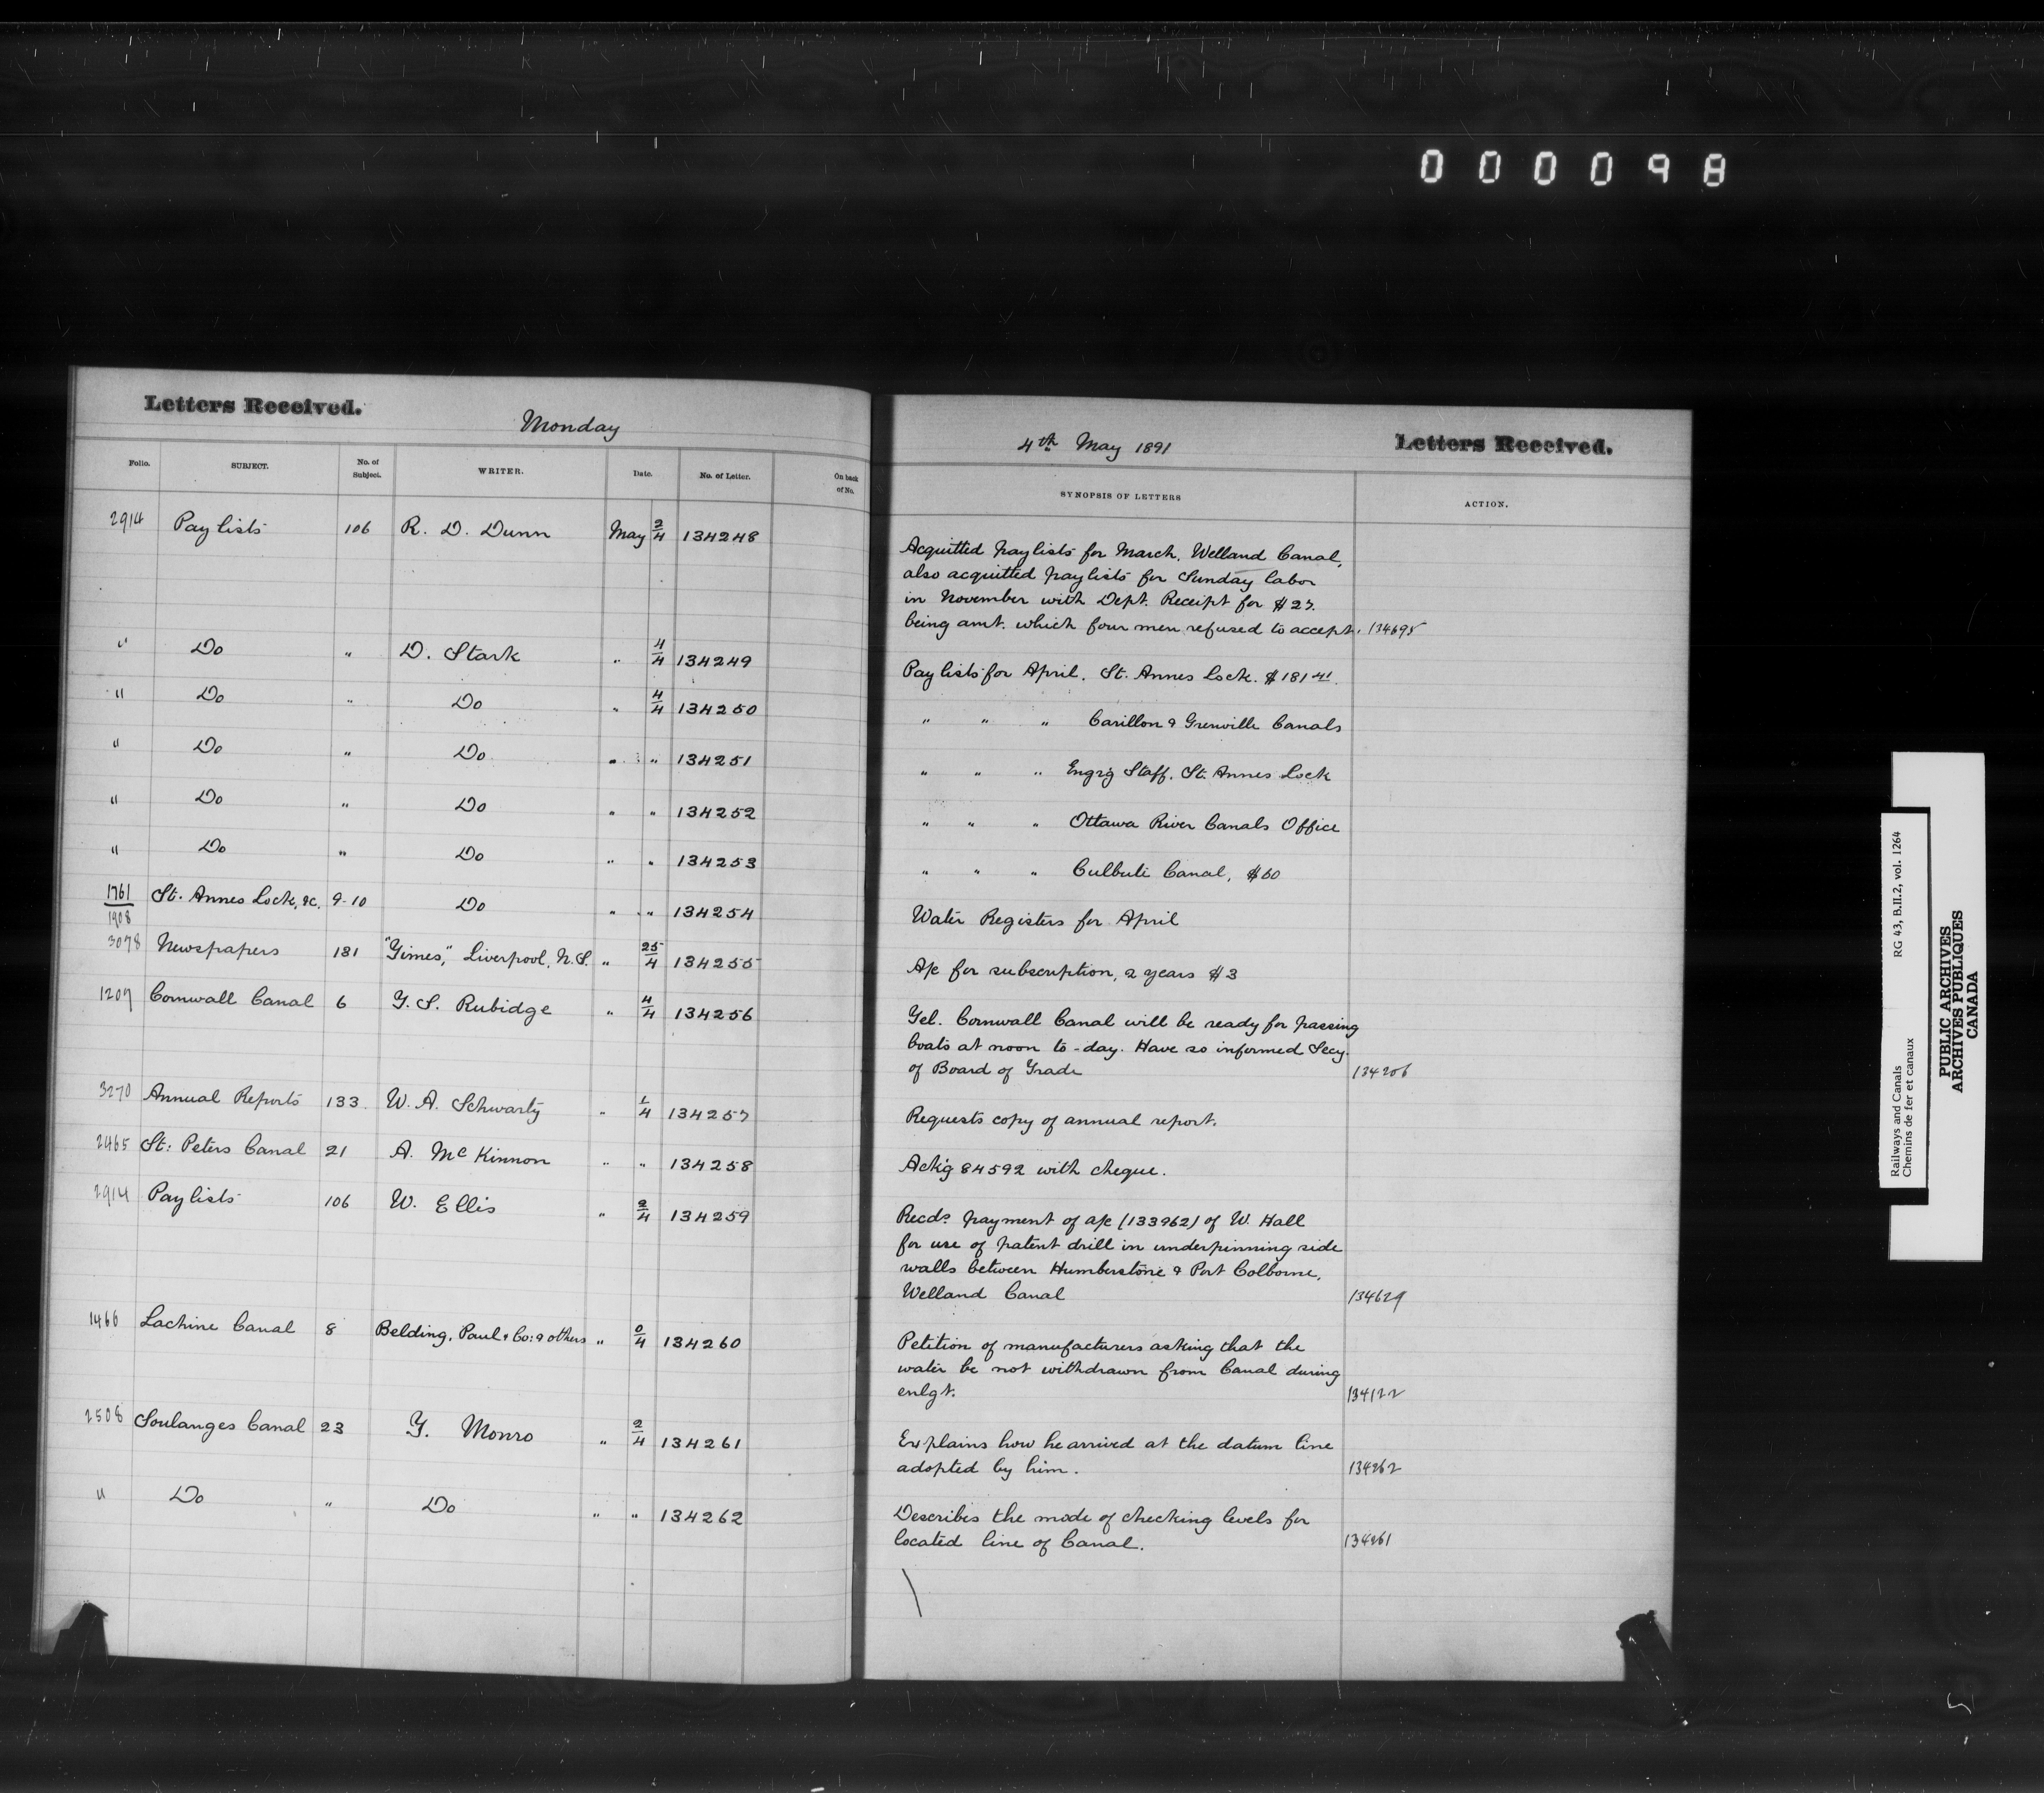 000098
Letters Received.
Monday
Folio. SUBJECT. No. of Subject. WRITER. Date. No. of Letter. On back of No.
2914 Pay lists 106 R. D. Dunn May 2/4 134248
" Do " D. Stark " 4/4 134249
" Do " Do " 4/4 134250
" Do " Do " " 134251
" Do " Do " " 134252
" Do " Do " " 134253
1761/1908 St. Annes Lock, &c. 9-10 Do " " 134254
3078 Newspapers 131 "Times," Liverpool, N.S. " 25/4 134255
1207 Cornwall Canal 6 T. S. Rubidge " 4/4 134256
3270 Annual Reports 133 W. A. Schwartz " 1/4 134257
2465 St: Peters Canal 21 A. McKinnon " " 134258
2914 Pay lists 106 W. Ellis " 2/4 134259
1466 Lachine Canal 8 Belding, Paul & Co: & others " 0/4 134260
2508 Soulanges Canal 23 T. Monro " 2/4 134261
" Do " Do " " 134262
4th May 1891
Letters Received.
SYNOPSIS OF LETTERS ACTION.
Acquitted paylists for March, Welland Canal,
also acquitted paylists for Sunday labor
in November with Dept. Receipt for $27.
being amt. which four men refused to accept. 134695
Pay lists for April. St. Annes Lock. $181 41.
" " " Carillon & Grenville Canals
" " " Engrg Staff. St. Annes Lock
" " " Ottawa River Canals Office
" " " Culbute Canal, $60
Water Registers for April
A/c for subscription, 2 years $3
Tel. Cornwall Canal will be ready for passing
boats at noon to-day. Have so informed Secy.
of Board of Trade 134206
Requests copy of annual report.
Ackg 84592 with cheque.
Recds. payment of a/c (133962) of W. Hall
for use of patent drill in underpinning side
walls between Humberstone & Port Colborne,
Welland Canal 134629
Petition of manufacturers asking that the
water be not withdrawn from Canal during
enlgt. 134122
Explains how he arrived at the datum line
adopted by him. 134262
Describes the mode of checking levels for
located line of Canal. 134261
Railways and Canals RG 43, B.II.2, vol. 1264
Chemins de fer et canaux
PUBLIC ARCHIVES
ARCHIVES PUBLIQUES
CANADA